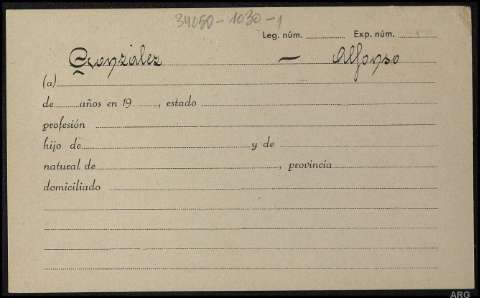 34050-1030-1
Leg. núm. Exp. núm.
González — Alfonso
(a)
de años en 19 , estado
profesión
hijo de y de
natural de , provincia
domiciliado
ARG